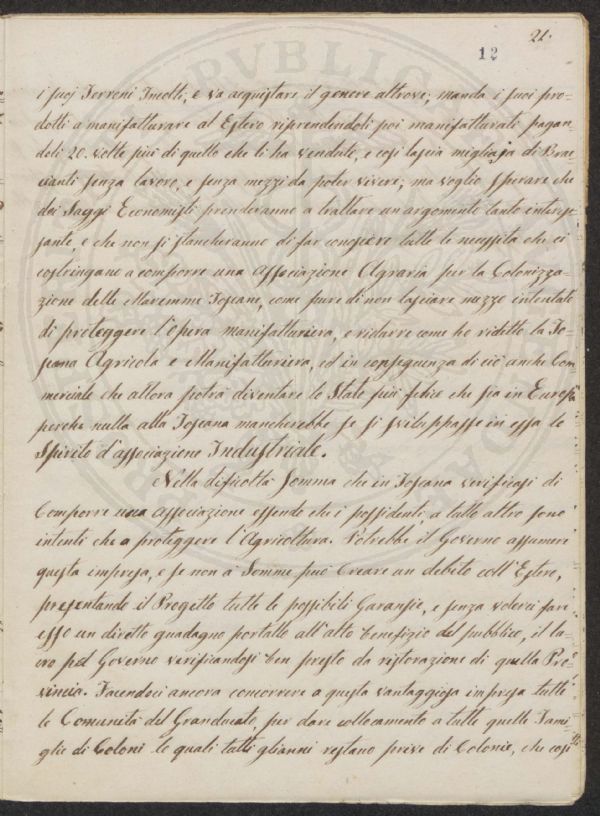 21.
12
i suoj Terreni Incolti, e va acquistare il genere altrove; manda i suoi pro-
dotti a manifatturare al Estero riprendendoli poi manifatturati pagan-
doli 20. volte piu di quello che li ha venduto, e cosi lascia migliaja di Brac-
cianti senza lavoro, e senza mezzi da poter vivere; ma voglio sperare che
dei Saggi Economisti prenderanno a trattare un argomento tanto interes-
sante, e che non si stancheranno di far conoscere tutte le necessita che ci
costringano a comporre una Associazione Agraria per la Colonizza-
zione delle Maremme Toscane, come pure di non lasciare mezzo intentato
di proteggere l'opera manifatturiera, e ridurre come ho ridetto la To-
scana Agricola e Manifatturiera, ed in conseguenza di ciò anche Com-
merciale che allora potrà diventare lo Stato piu felice che sia in Europa
perche nulla alla Toscana mancherebbe se si sviluppasse in essa lo
Spirito d'associazione Industriale.
Nella dificoltà Somma che in Toscana verificasi di
Comporre una associazione essendo che i possidenti, a tutto altro sono
intenti che a proteggere l'Agricoltura. Potrebbe il Governo assumersi
questa impresa, e se non à Somme può Creare un debito coll'Estero,
presentando il Progetto tutte le possibili Garanzie, e senza volerci fare
esso un diretto guadagno portallo all'alto benefizio del pubblico, il lu-
cro pel Governo verificandosi ben presto da ristorazione di quella Pro-
vincia. Facendoci ancora concorrere a questa vantaggiosa impresa tutti
le Comunità del Granducato, per dare collocamento a tutte quelle Fami-
glie di Coloni le quali tutti glianni restano prive di Colonie, che cosi